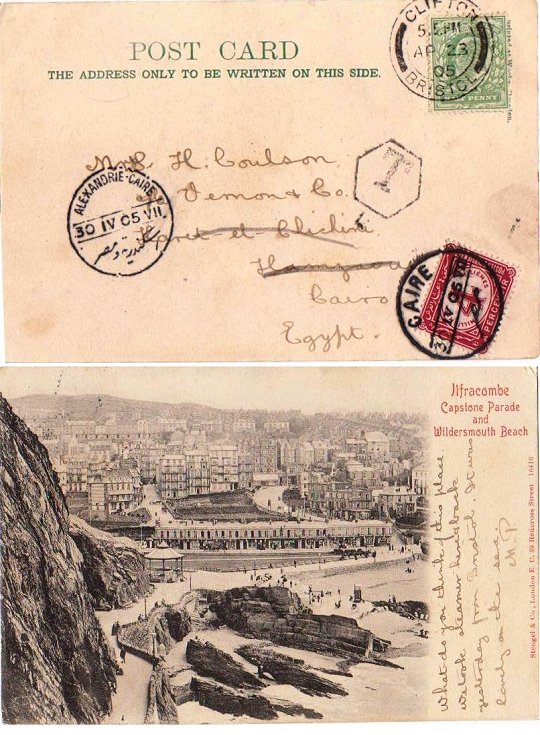 POST CARD
THE ADDRESS ONLY TO BE WRITTEN ON THIS SIDE.
CLIFTON
5.5 PM
AP 23
05
BRISTOL
PENNY
T
H. Coulson,
Vernon & Co.
ALEXANDRIE-CAIRE
30 IV 05 VII
اسكندرية ومصر
Cairo
Egypt.
CAIRE
PERCEVOIR
Ilfracombe
Capstone Parade
and
Wildersmouth Beach
What do you think of this place
we took steamer here & back
yesterday from Bristol. It was
lovely on the sea
M.P.
Stengel & Co., London E. C. 39 Redcross Street 16416